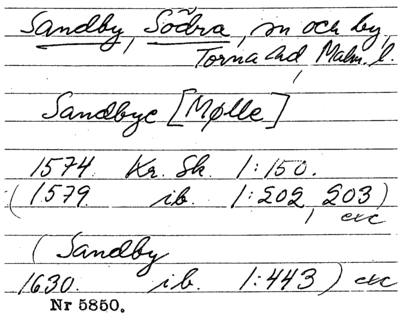 Sandby, Södra, sn och by,
Torna hd, Malm. l.
Sandbye [Mølle]
1574. Kr. Sk. 1:150.
(1579 ib. 1:202, 203)
exc
( Sandby
1630. ib. 1:443) exc
Nr 5850.